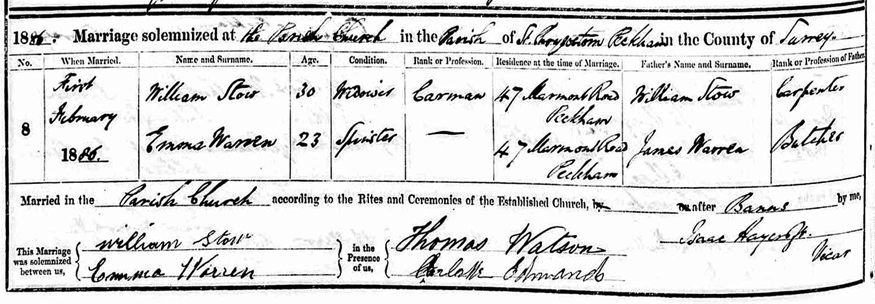 1886. Marriage solemnized at the Parish Church in the Parish of St. Chrysostom Peckham in the County of Surrey.
No. When Married. Name and Surname. Age. Condition. Rank or Profession. Residence at the time of Marriage. Father's Name and Surname. Rank or Profession of Father.
8 First February 1886. William Stow 30 Widower Carman 47 Marmont Road Peckham William Stow Carpenter
Emma Warren 23 Spinster — 47 Marmont Road Peckham James Warren Butcher
Married in the Parish Church according to the Rites and Ceremonies of the Established Church, by or after Banns by me,
This Marriage was solemnized between us, William Stow Emma Warren in the Presence of us, Thomas Watson Charlotte Edmands Isaac Vicar